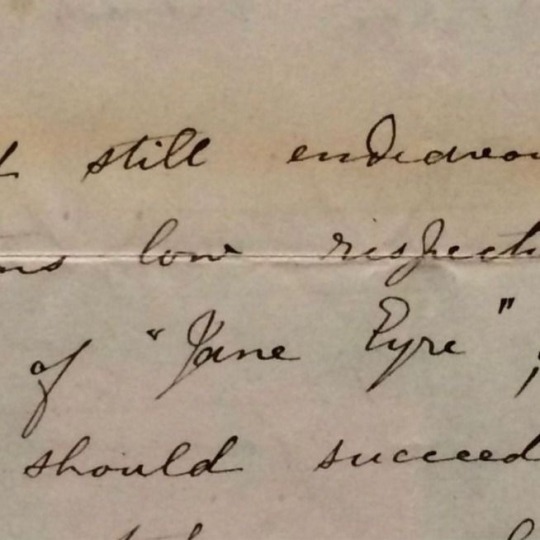 still endeavou
low respect
of "Jane Eyre",
should succeed